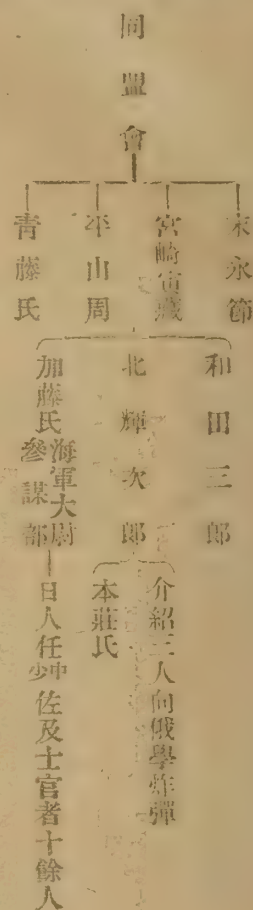 同盟會
末永節
宮崎寅藏
平山周
青藤氏
和田三郎
北輝次郎
加藤氏 海軍大尉 參謀部
介紹三人向俄學炸彈
本莊氏
日人任中少佐及士官者十餘人